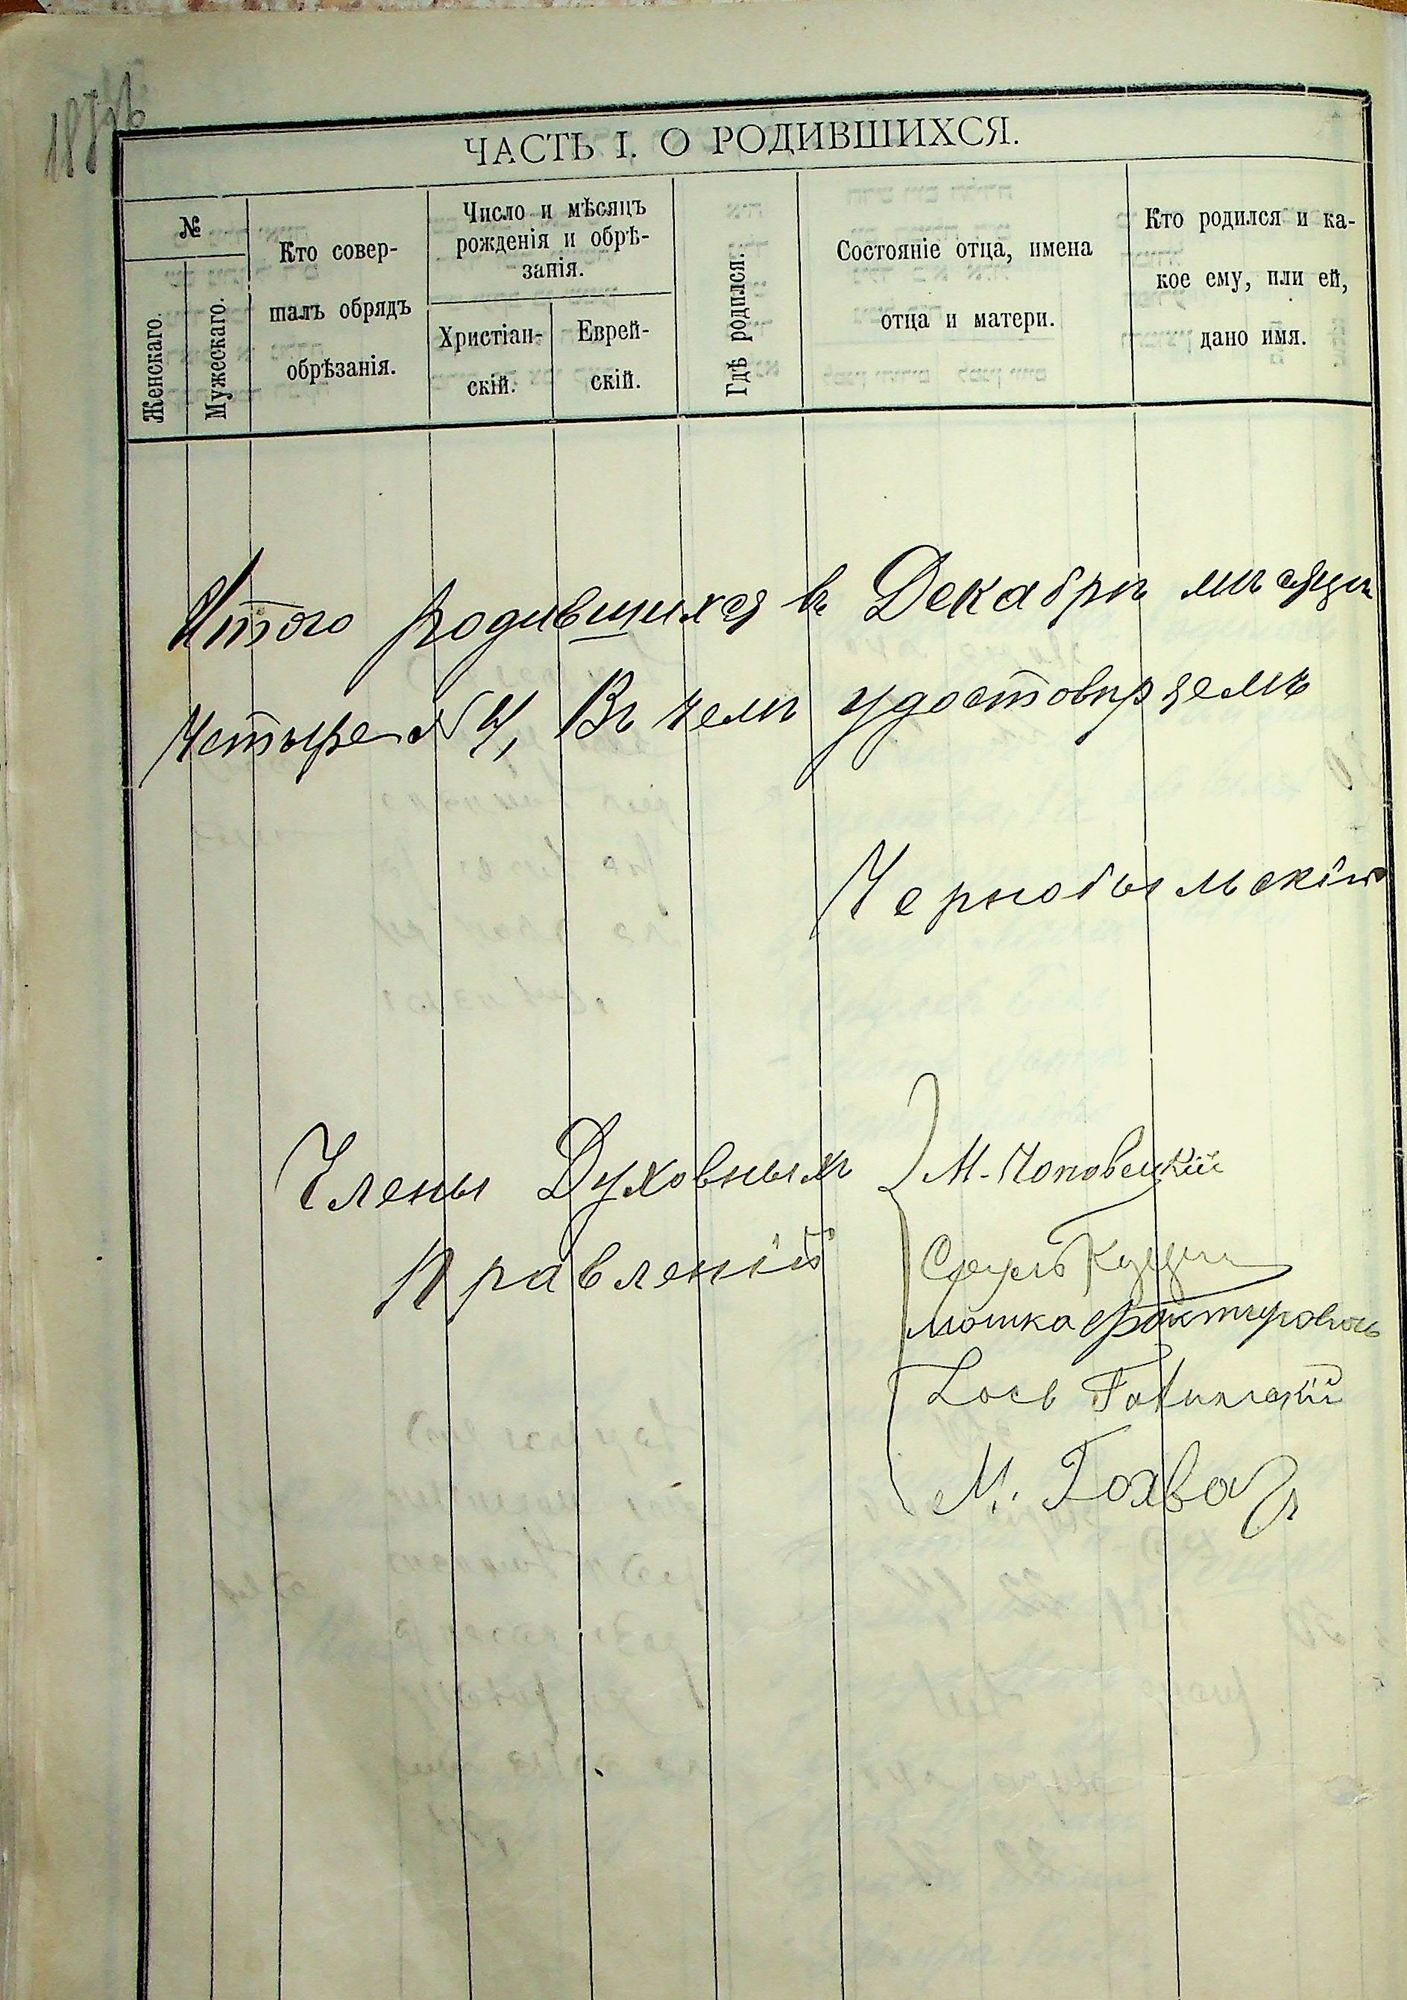 ЧАСТЬ I. О РОДИВШИХСЯ.
№
Женскаго.
Мужескаго.
Кто совер-
шалъ обрядъ
обрѣзанія.
Число и мѣсяцъ
рожденія и обрѣ-
занія.
Христіан-
скій.
Еврей-
скій.
Гдѣ родился.
Состояніе отца, имена
отца и матери.
Кто родился и ка-
кое ему, или ей,
дано имя.
Итого родившихся въ Декабрѣ мѣсяцѣ
Четыре №4, Въ чемъ удостовѣряемъ
Чернобыльскій
Члены Духовныхъ
Правленій
М. Чоповецкій
Мошка Фактуровичъ
М. Гохва